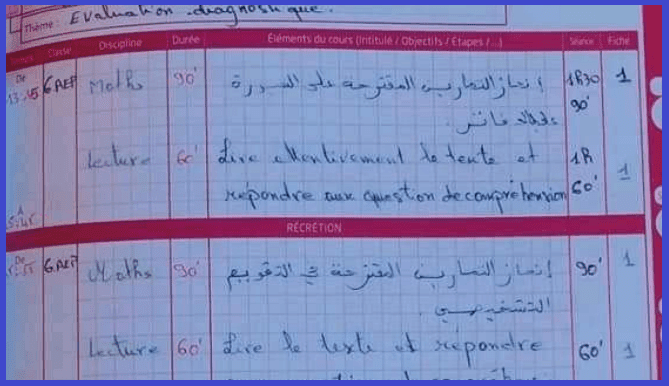 Thème : Evaluation diagnostique.
Classe Discipline Durée Éléments du cours (Intitulé / Objectifs / Étapes / ...) Séance Fiche
De 13:45 6AEP Maths 90' إنجاز التمارين المقترحة على السبورة 1h30 1
90'
lecture 60' Lire attentivement le texte et 1h
répondre aux question de compréhension 60' 1
A
RÉCRÉTION
De 6AEP Maths 90' إنجاز التمارين المقترحة في التقويم 90' 1
التشخيصي.
lecture 60' Lire le texte et répondre 60' 1